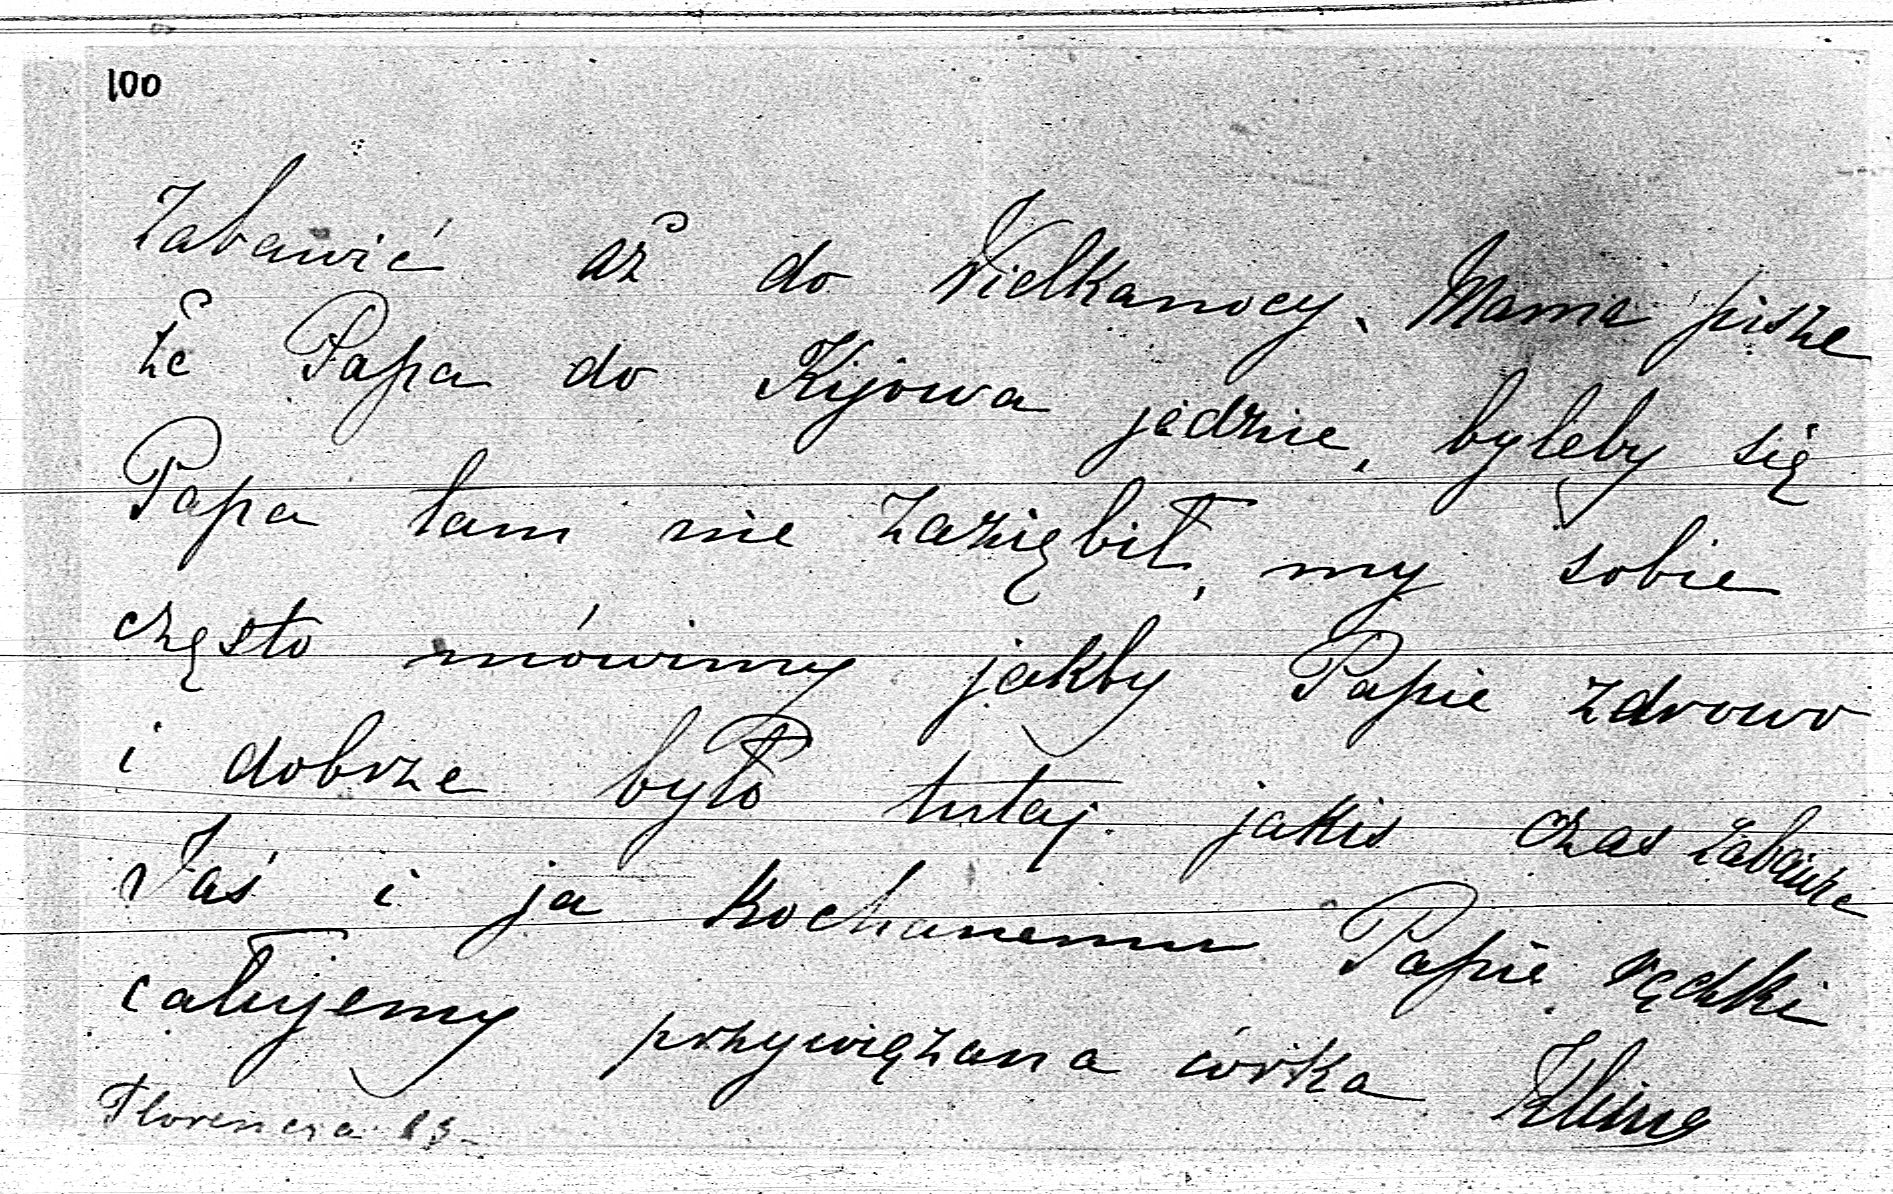 100
Zabawić aż do Wielkanocy. Mama pisze
że Papa do Kijowa jedzie, byleby się
Papa tam nie zaziębił, my sobie
często mówimy jakby Papie zdrowo
i dobrze było tutaj jakis czas
Jaś i ja Kochanemu Papie rączki
całujemy przywiązana córka
Florencja